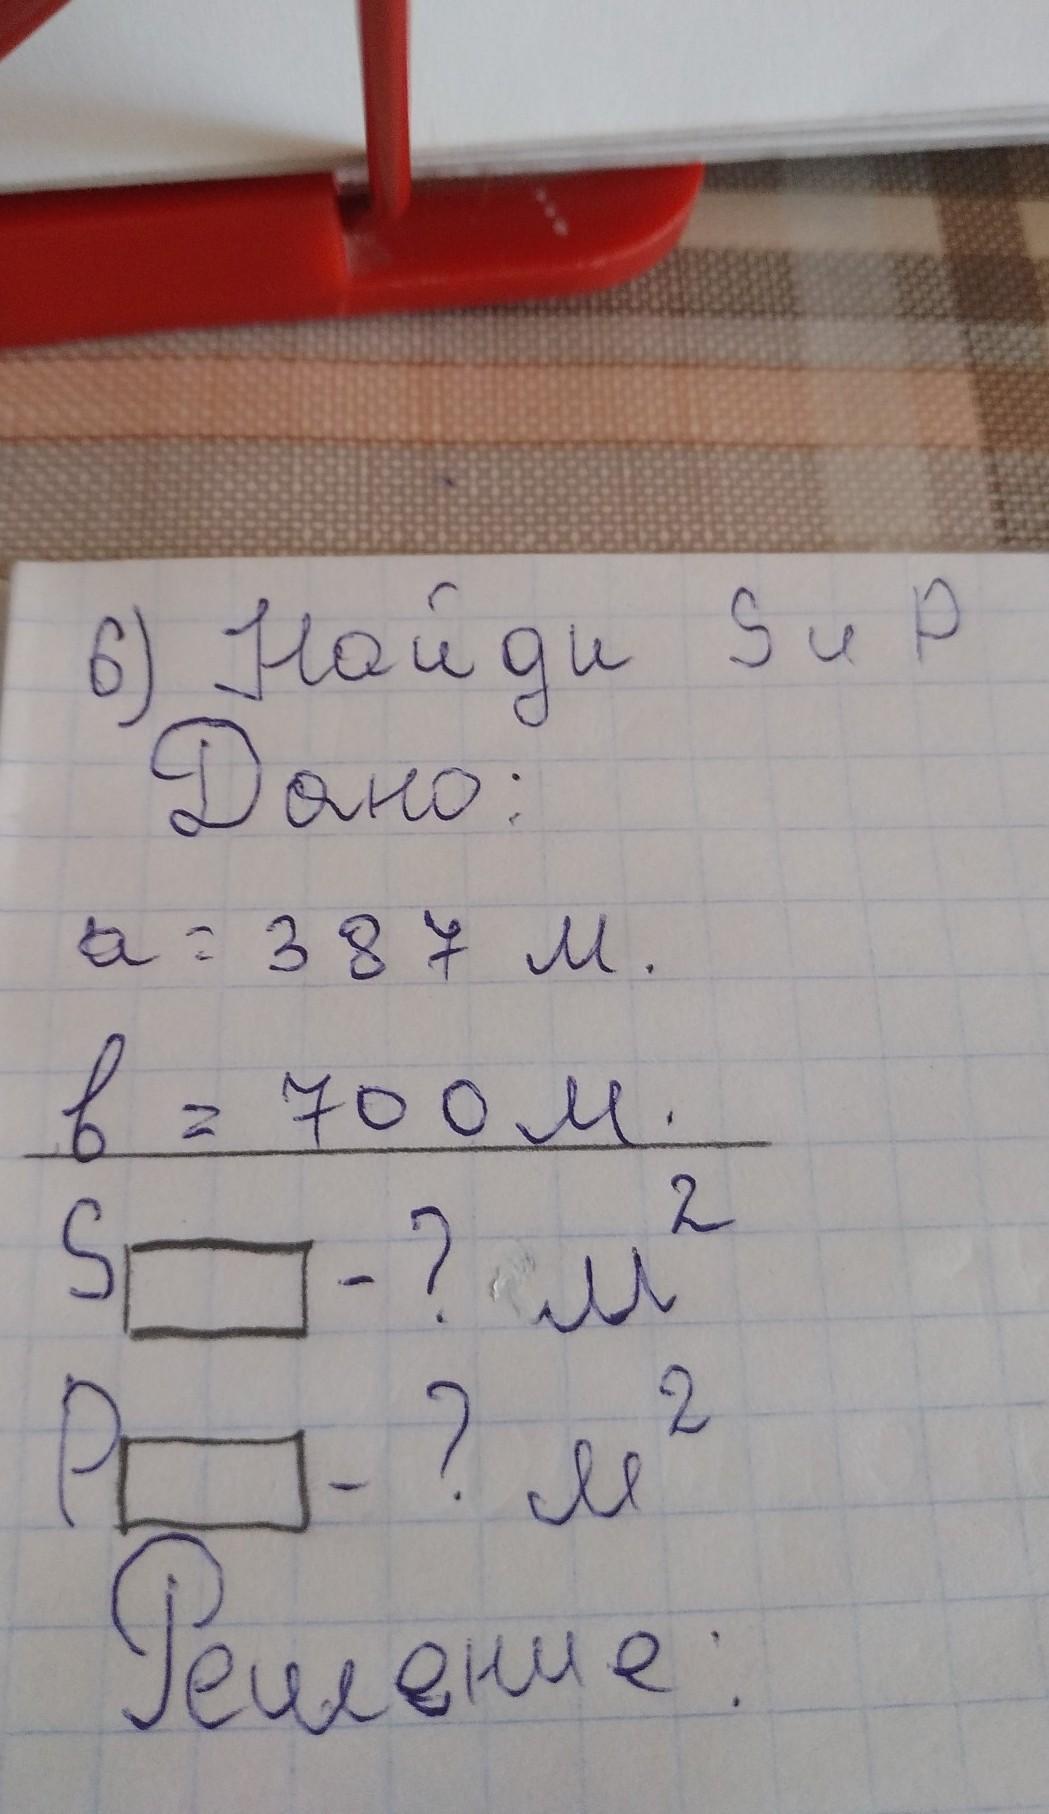 6) Найди S и P
Дано:
a = 387 м.
b = 700 м.
S - ? м²
P - ? м²
Решение: